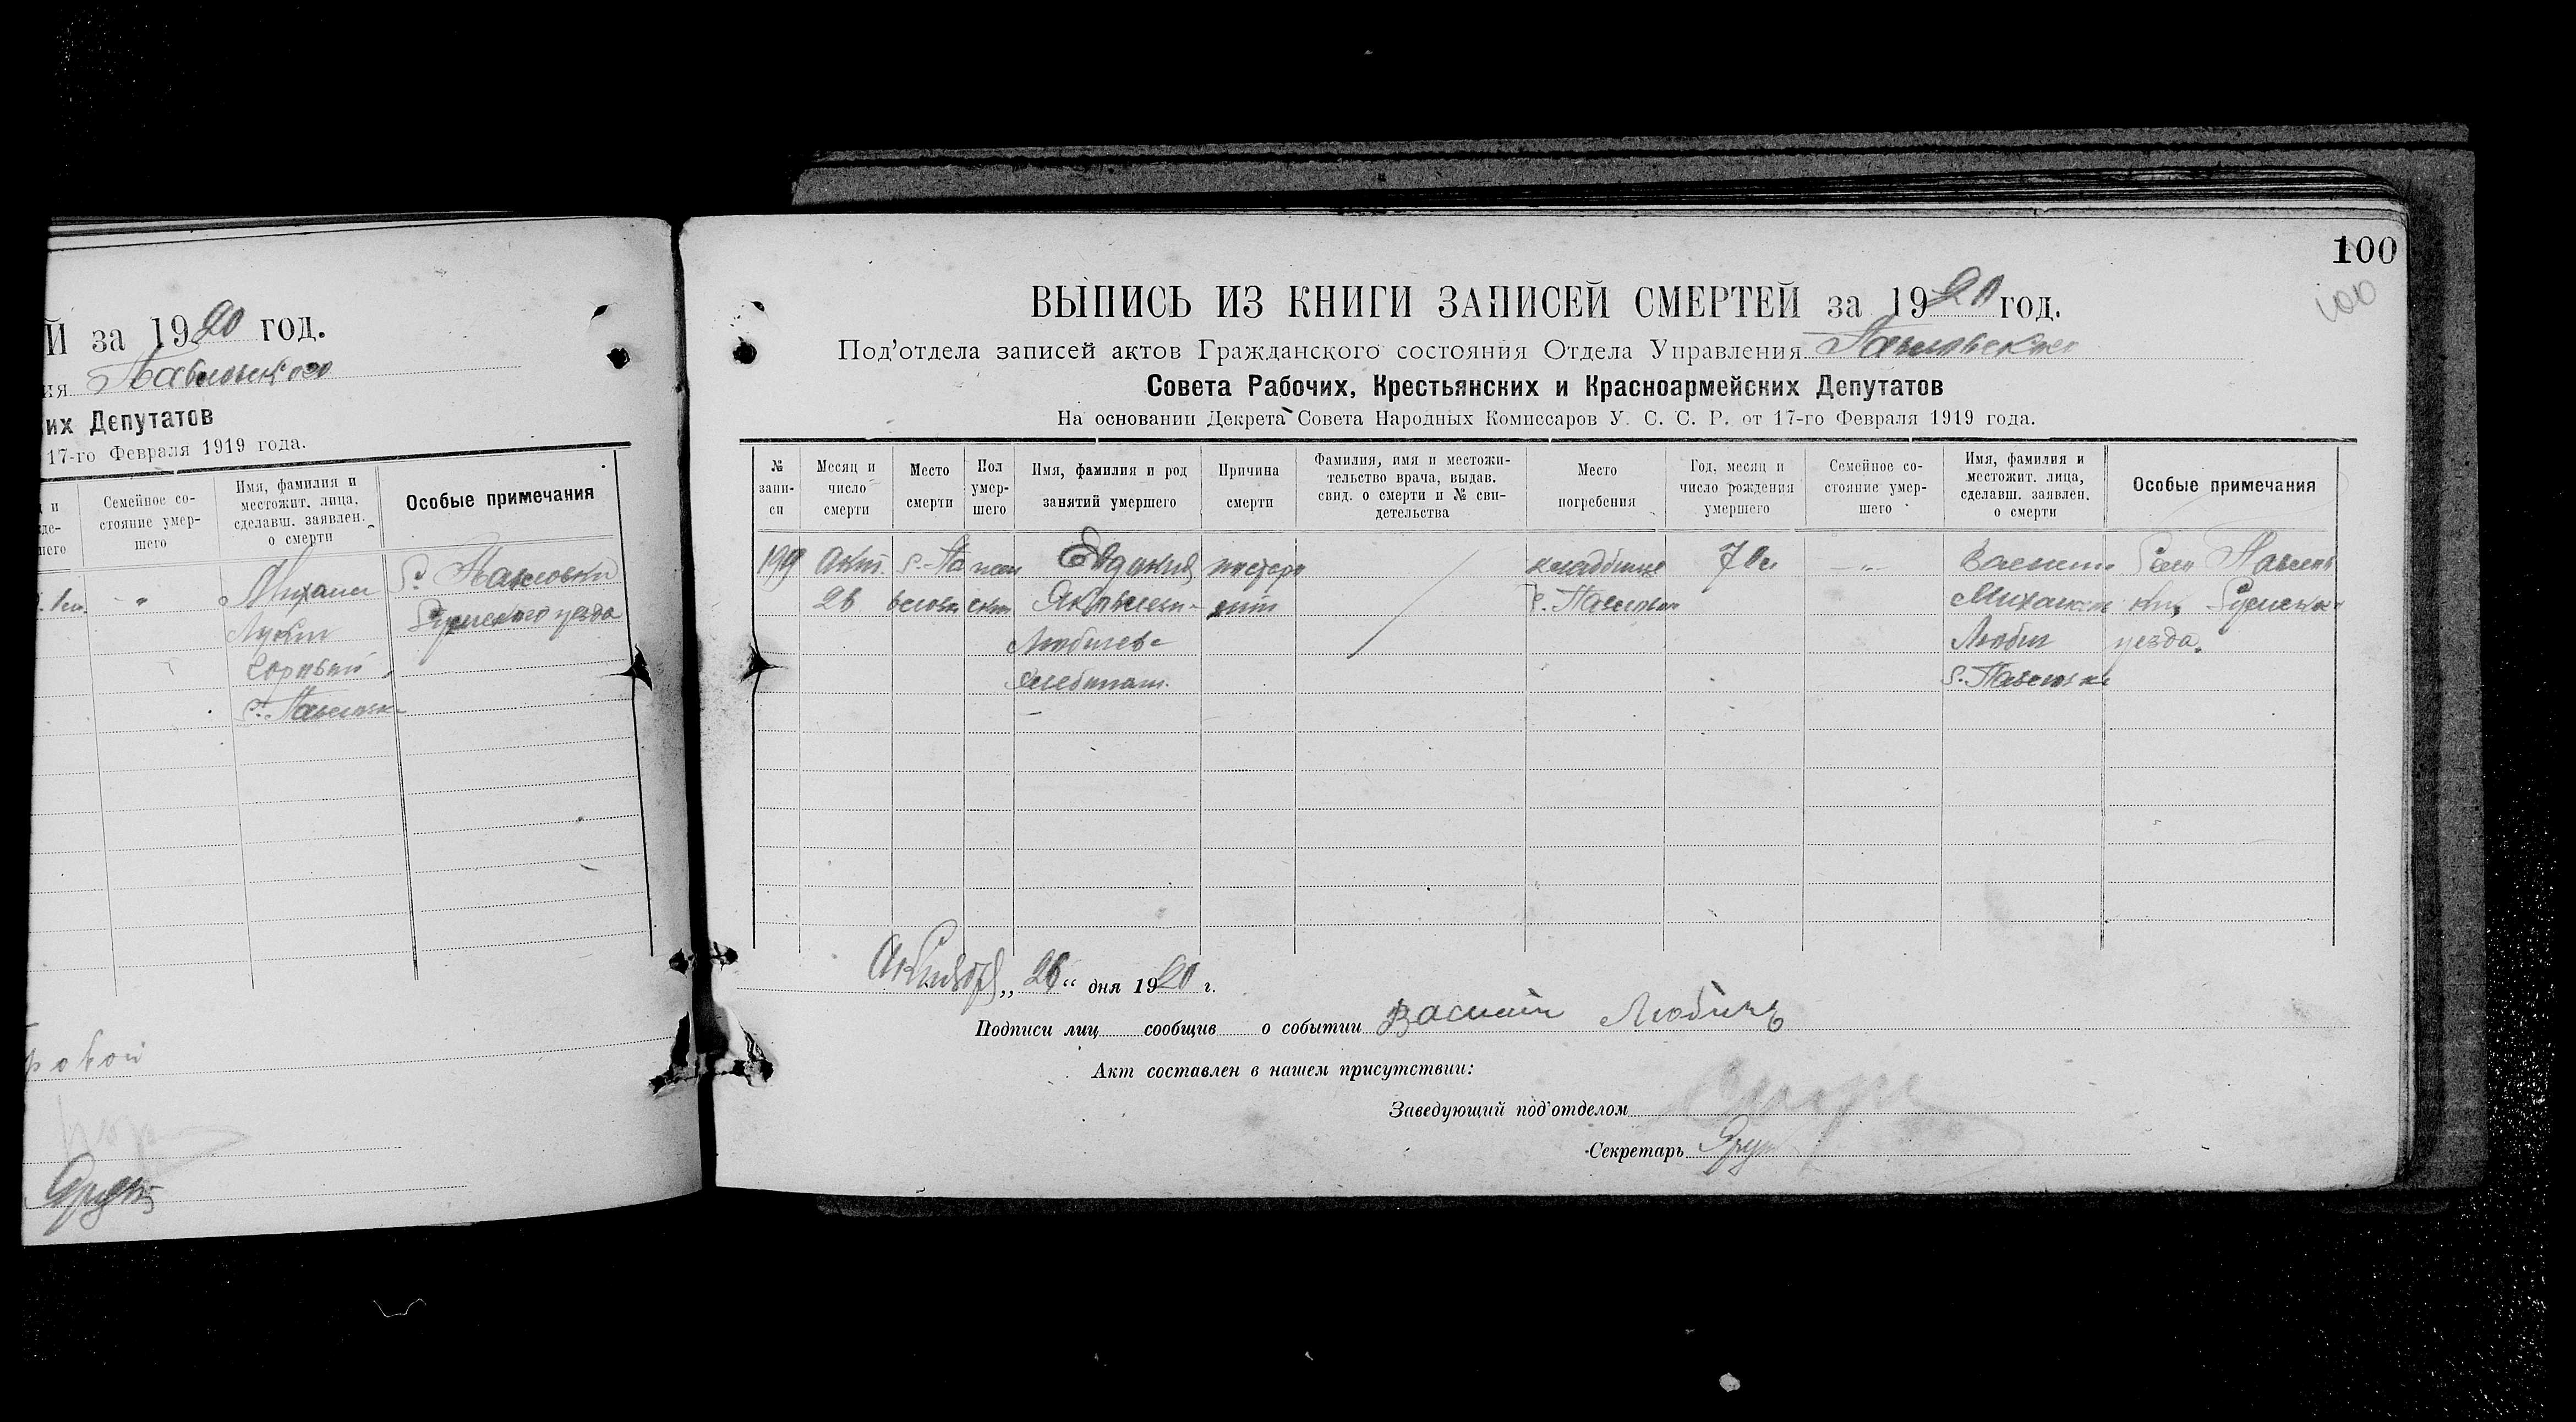 Й за 1920 год.
ия Павловского
их Депутатов
17-го Февраля 1919 года.
Семейное со-
стояние умер-
шего
Имя, фамилия и
местожит. лица,
сделавш. заявлен.
о смерти
Особые примечания
Михаил
Лукин
с. Павловки
Сумского уезда
с. Павловка
100
100
ВЫПИСЬ ИЗ КНИГИ ЗАПИСЕЙ СМЕРТЕЙ за 1920 год.
Под'отдела записей актов Гражданского состояния Отдела Управления Павловского
Совета Рабочих, Крестьянских и Красноармейских Депутатов
На основании Декрета Совета Народных Комиссаров У. С. С. Р. от 17-го Февраля 1919 года.
№
запи-
си
Месяц и
число
смерти
Место
смерти
Пол
умер-
шего
Имя, фамилия и род
занятий умершего
Причина
смерти
Фамилия, имя и местожи-
тельство врача, выдав.
свид. о смерти и № сви-
детельства
Место
погребения
Год, месяц и
число рождения
умершего
Семейное со-
стояние умер-
шего
Имя, фамилия и
местожит. лица,
сделавш. заявлен.
о смерти
Особые примечания
199
Окт.
26
с. Па
вловк
женс
ский
Евдокия
Яковлевн
Любичева
хлебопаш.
кладбище
с. Павловки
Василий
Михайлов
Любич
с. Павловка
Села Павлов
ки, Сумского
уезда.
Октября „ 26 “ дня 1920 г.
Подписи лиц сообщив о событии Василий Любичъ
Акт составлен в нашем присутствии:
Заведующий под'отделом
Секретарь